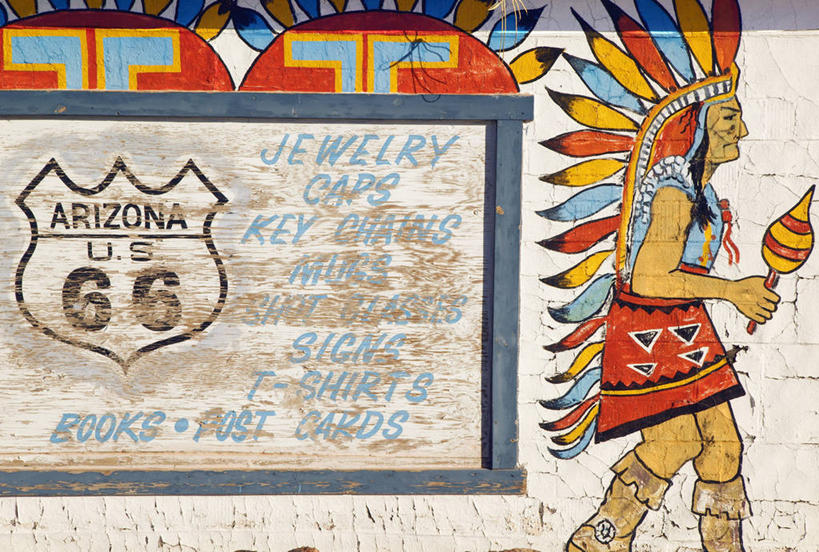 ARIZONA
U.S
66
JEWELRY
CAPS
KEY CHAINS
MUGS
SHOT GLASSES
SIGNS
T-SHIRTS
BOOKS • POST CARDS